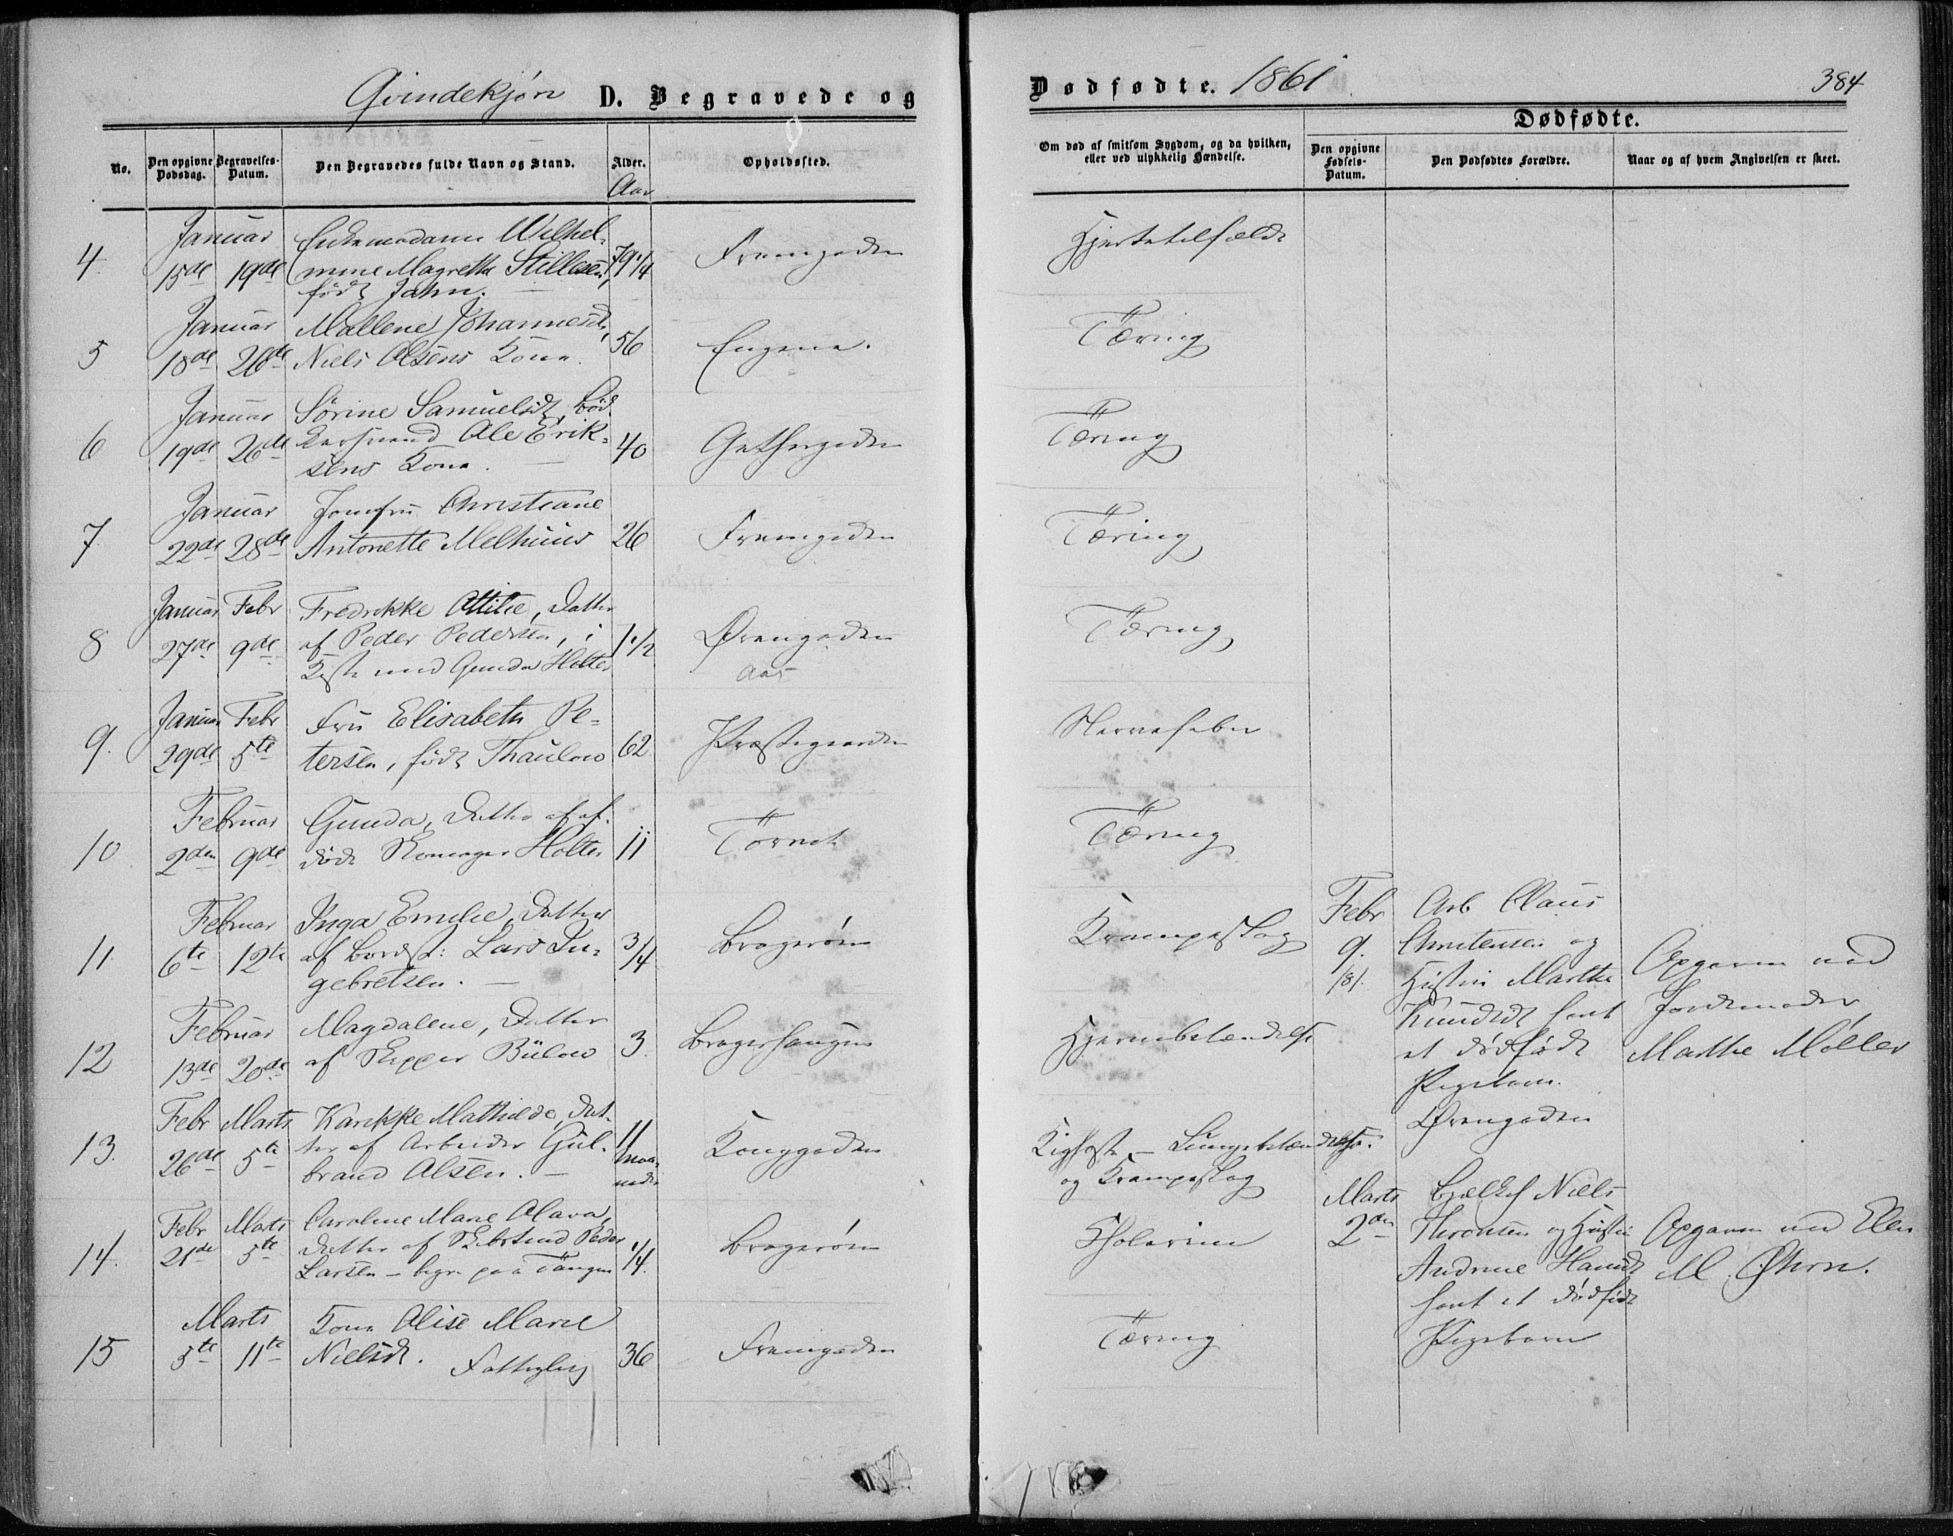 Qvindekjøn D. Begravede og
Dødfødte. 1861
384
No.
Den opgivne Dødsdag.
Begravelses-Datum.
Den Begravedes fulde Navn og Stand.
Alder. Aar
Opholdssted.
Om død af smitsom Sygdom, og da hvilken, eller ved ulykkelig Hændelse.
Dødfødte.
Den opgivne Fødsels-Datum.
Den Dødfødtes Forældre.
Naar og af hvem Angivelsen er skeet.
4.
Januar
15de 19de
Enkemadame Wilhel-
mine Magrethe
født Jahn.
79 1/4
Fremgaden
Hjertetilfælde
5
Januar
18de 26de
Mallene Johannesd,
Niels Olsens Kone.
56
Engene.
Tæring
6
Januar
19de 26de
Sørine Samuelsdt, Bød
kersvend Ole Erik-
sens Kone.
40
Tæring
7
Januar
22de 28de
Jomfru Christiane
Antonette Melhuus
26
Fremgaden
Tæring
8
Januar Febr
27de 9de
Fredrikke Ottilie, Datter
af Peder Pedersen, i
Kiste med Gunda Holter
1 1/2
Øvregaden
Aas
Tæring
9.
Januar Febr
29de 5te
Fru Elisabeth Pe-
tersen, født Thaulow
62
Præstegaarden
Nervefeber
10
Februar
2den 9de
Gunda, Datter af af-
døde Skomager Holter
11
Tørvet
Tæring
11.
Februar
6te 12te
Inga Emilie, Datter
af Bordst: Lars In-
gebretsen.
3/4
Bragerøen
Krampeslag
12
Februar
13de 20de
Magdalene, Datter
af Skipper Bülow
3.
Bragerhaugen
Hjernebetændelse
13.
Febr Marts
26de 5te
Karikke Mathilde, Dat-
ter af Arbeider Gul-
brand Olsen.
11 maaneder
Konggaden
Kighoste - Lungebetændelse.
og Krampeslag
14.
Febr Marts
21de 5te
Caroline Marie Olava,
Datter af Peder
Larsen - begr. paa Tangen
1/4.
Bragerøen
Kholerine
15
Marts
5te 11te
Kone Olise Marie
Nielsdt. Fattiglem
36
Fremgaden
Tæring
Febr
9.
181.
Arb Claus
Christensen og
Hustru Marthe
Knudsdt havt
et dødfødt
Pigebarn.
Øvregaden
Opgaven ved
Jordemoder
Marthe Møller
Marts
2den
Niels
Thronsen og Hustru
Andrine Hansdt
havt et dødfødt
Pigebarn
Opgaven ved Elen
M. Øhrn.